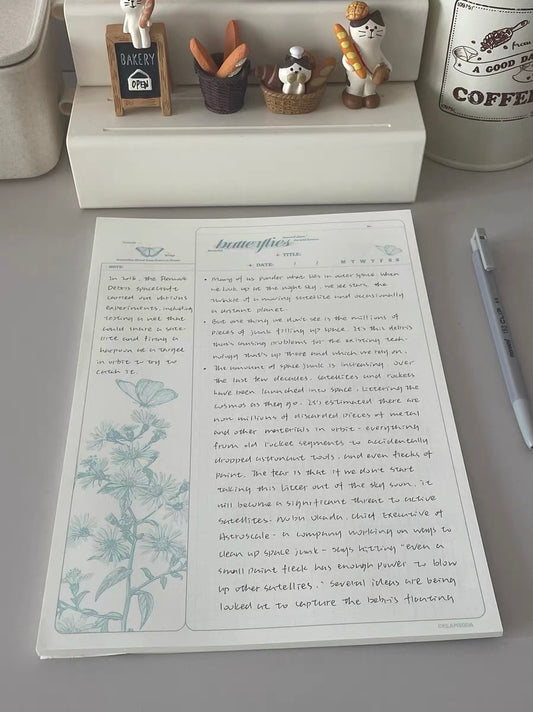 BAKERY
OPEN
from
A GOOD DA
COFFEE
butterflies
TITLE:
DATE: / /
M T W T F S S
NOTE:
In 2018, the Remove
Debris spacecraft
carried out various
experiments, including
testing a net that
could snare a sate-
llite and firing a
harpoon at a target
in orbit to try to
catch it.
• Many of us ponder what lies in outer space. When
we look up at the night sky, we see stars, the
a moving satellite and occasionally
a distant planet.
• But one thing we don't see is the millions of
pieces of junk filling up space. It's this debris
that's causing problems for the existing tech-
nology that's up there and which we rely on.
• The amount of space junk is increasing. Over
the last few decades, satellites and rockets
have been launched into space, littering the
cosmos as they go. It's estimated there are
now millions of discarded pieces of metal
and other materials in orbit - everything
from old rocket segments to accidentally
dropped astronaut tools, and even flecks of
paint. The fear is that if we don't start
taking this litter out of the sky soon, it
will become a significant threat to active
satellites. Nobu Okada, Chief Executive of
Astroscale - a company working on ways to
clean up space junk - says hitting "even a
small paint fleck has enough power to blow
up other satellies." Several ideas are being
looked at to capture the bebris floating